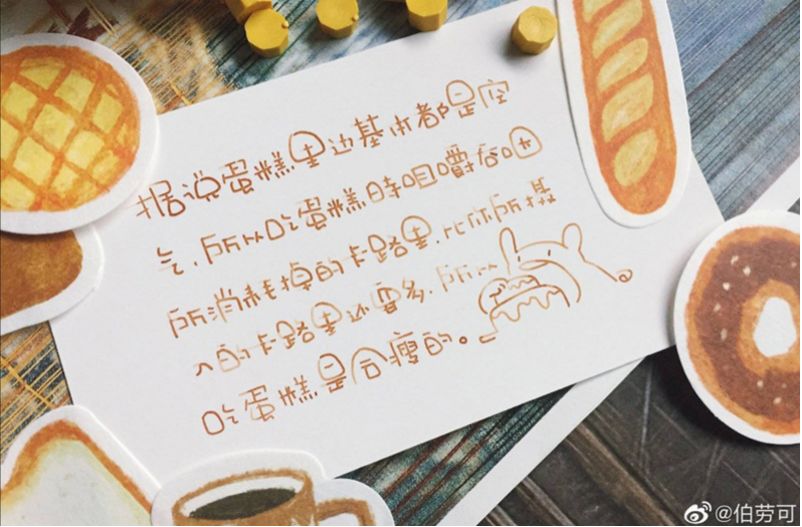 据说蛋糕里边基本都是空
气,所以吃蛋糕时咀嚼吞咽
所消耗掉的卡路里,比你所摄
入的卡路里还要多,所以
吃蛋糕是会瘦的。
@伯劳可